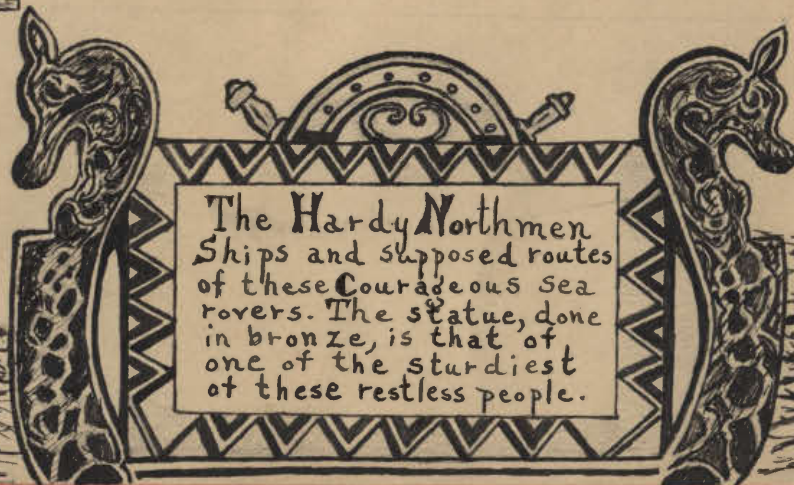 The Hardy Northmen
Ships and supposed routes
of these Courageous sea
rovers. The statue, done
in bronze, is that of
one of the sturdiest
of these restless people.